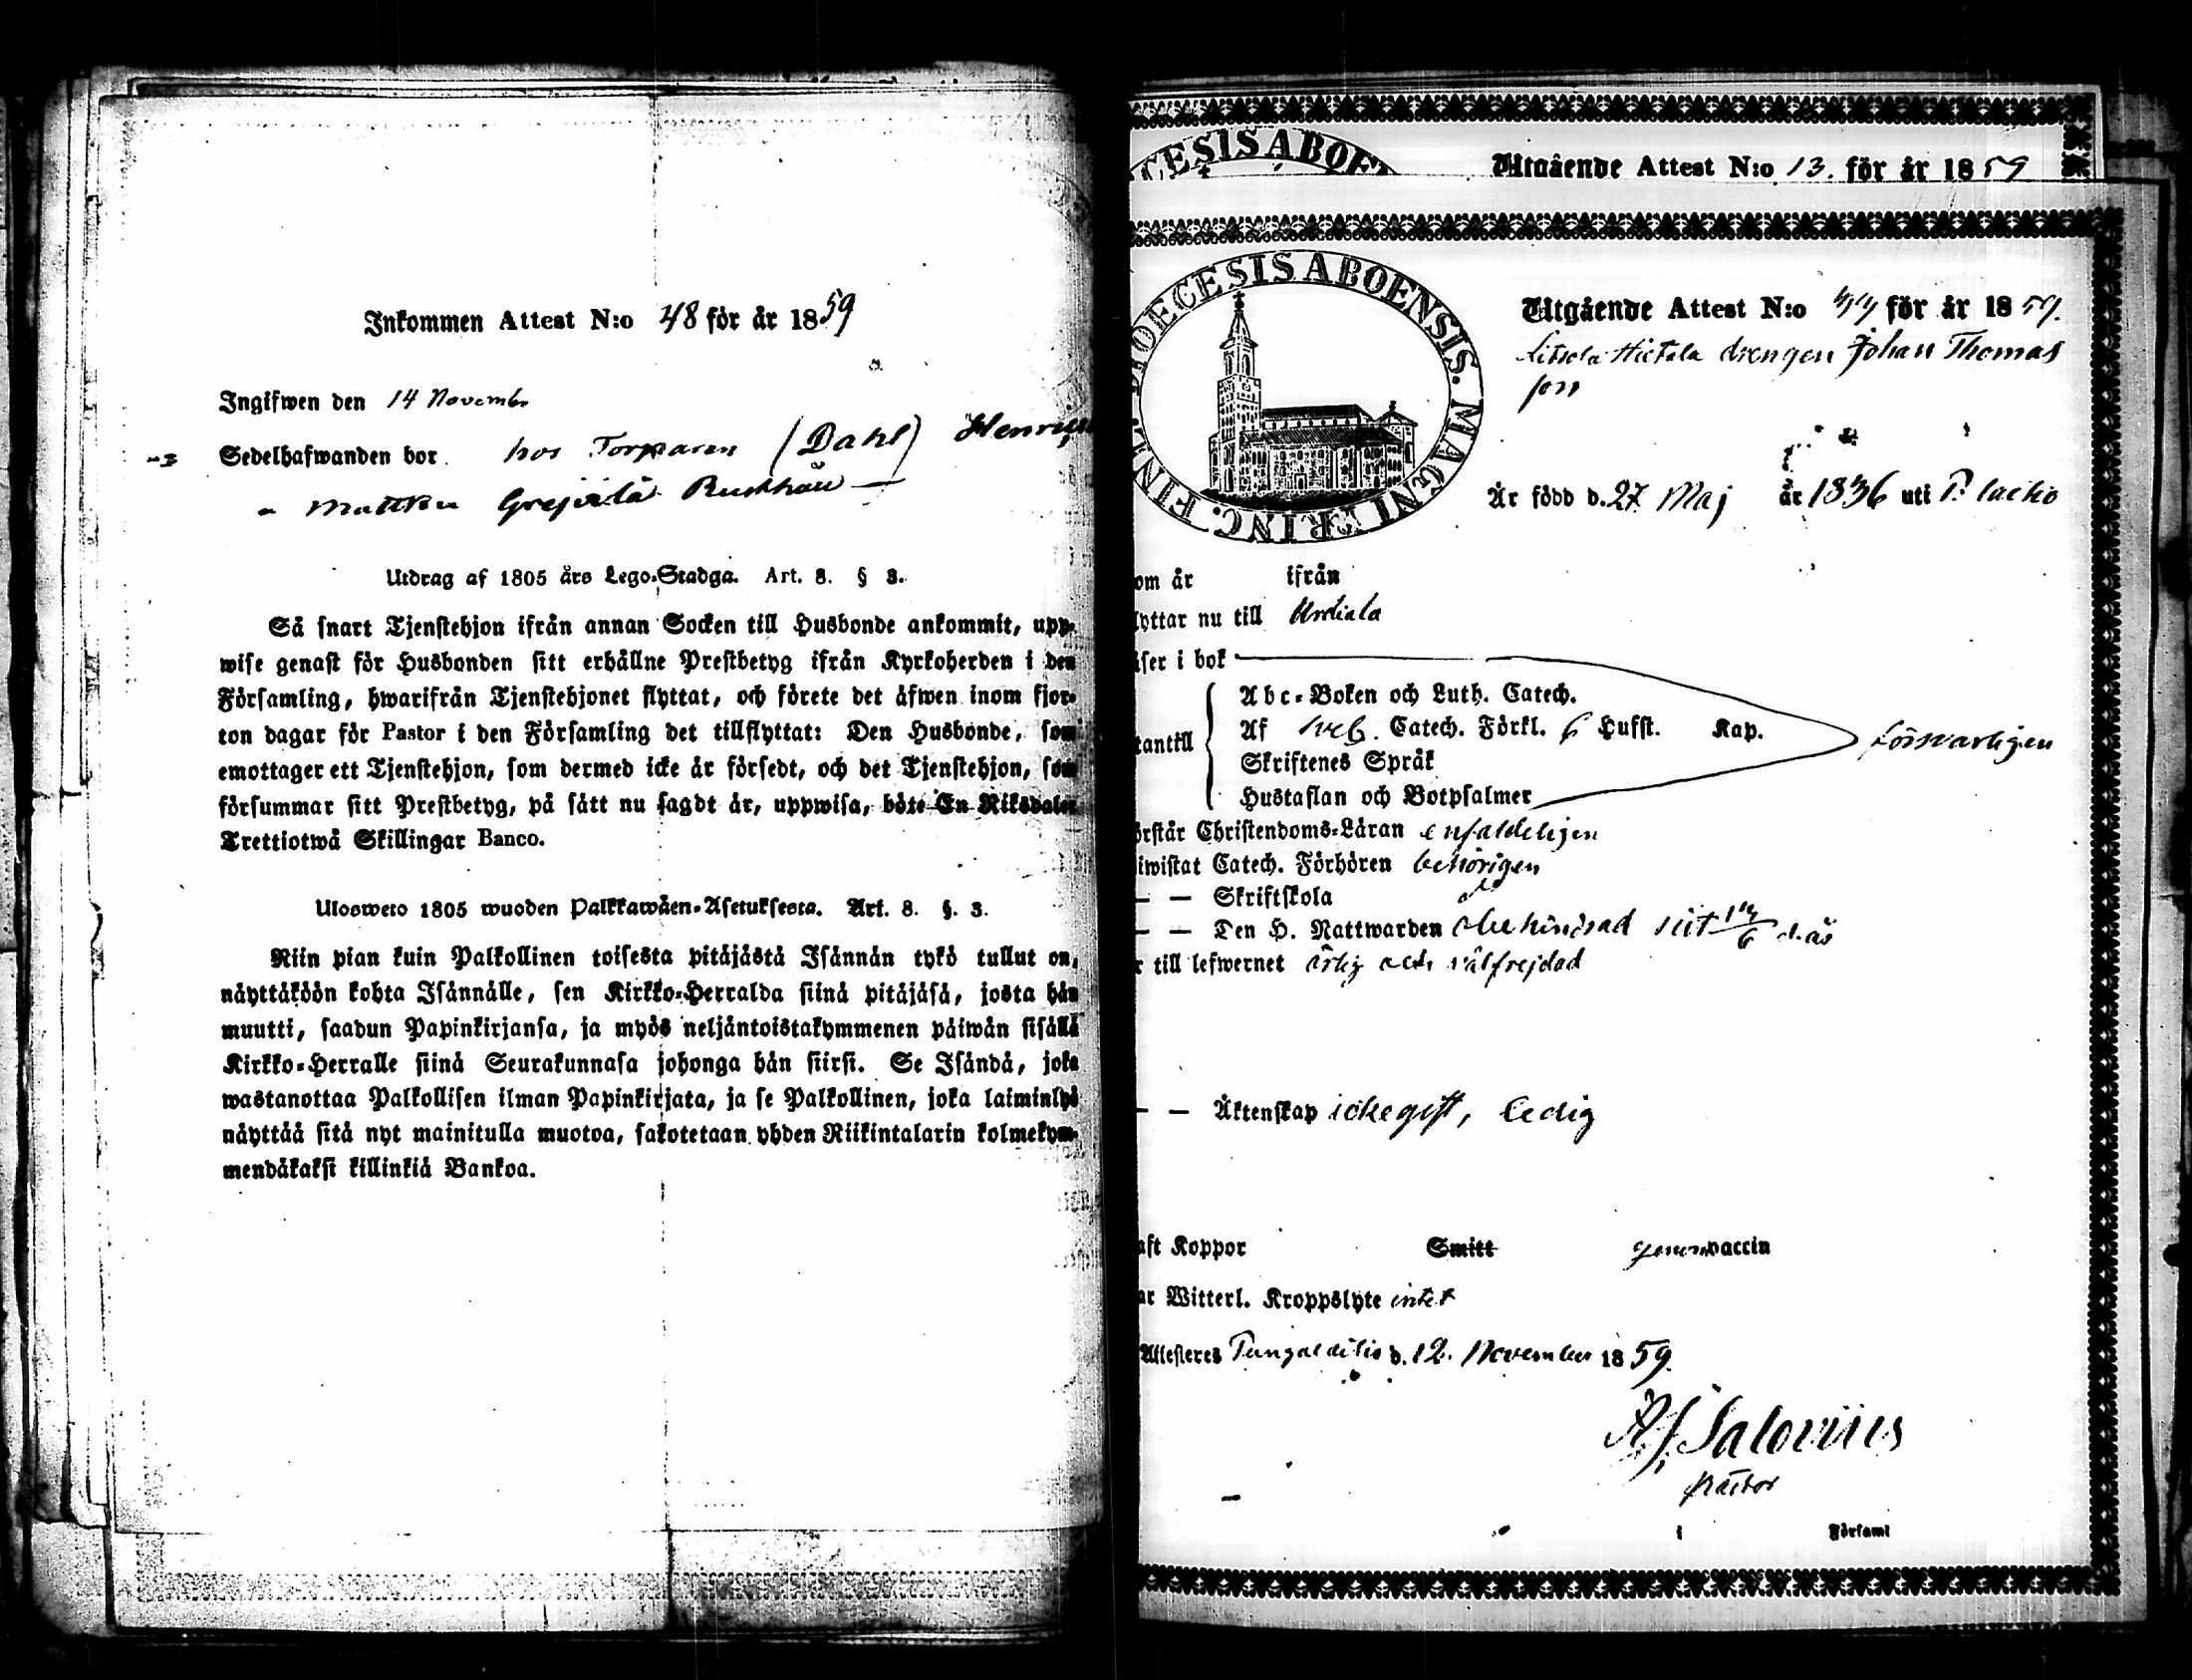 Inkommen Attest N:o 48 för år 1859
Ingifwen den 14 Novembr
Sedelhafwanden bor hos Torparen (Dahl)
Utdrag af 1805 års Lego-Stadga. Art. 8. § 3.
Så snart Tjenstehjon ifrån annan Socken till Husbonde ankommit, upp-
wise genast för Husbonden sitt erhållne Prestbetyg ifrån Kyrkoherden i den
Församling, hwarifrån Tjenstehjonet flyttat, och förete det äfwen inom fjor-
ton dagar för Pastor i den Församling det tillflyttat: Den Husbonde, som
emottager ett Tjenstehjon, som dermed icke är försedt, och det Tjenstehjon, som
försummar sitt Prestbetyg, på sätt nu sagdt är, uppwisa, böte En Riksdaler
Trettiotwå Skillingar Banco.
Ulosweto 1805 wuoden Palkkawäen-Asetuksesta. Art. 8. §. 3.
Niin pian kuin Palkollinen toisesta pitäjästä Isännän tykö tullut on,
näyttäköön kohta Isännälle, sen Kirkko-Herralda siinä pitäjäsä, josta hän
muutti, saadun Papinkirjansa, ja myös neljäntoistakymmenen päiwän sisällä
Kirkko-Herralle siinä Seurakunnasa johonga hän siirsi. Se Isändä, joka
wastanottaa Palkollisen ilman Papinkirjata, ja se Palkollinen, joka laiminlyö
näyttää sitä nyt mainitulla muotoa, sakotetaan yhden Riikintalarin kolmekym-
mendäkaksi killinkiä Bankoa.
CESIS ABOE
Utgående Attest N:o 13. för år 1859
DIOECESIS ABOENSIS. MAGNI PRINC. FINL.
Utgående Attest N:o 44 för år 1859.
Hietala drengen Johan Thomas
son
År född d. 27 Maj år 1836 uti P. laitio
om år ifrån
lyttar nu till Urdiala
äser i bok
Abc-Boken och Luth. Catech.
tantill Af Sveb. Catech. Förkl. 6 Hufst. Kap. försvarligen
Skriftenes Språk
Hustaflan och Botpsalmer
örstår Christendoms-Läran enfaldeligen
iwistat Catech. Förhören behörigen
— — Skriftskola do
— — Den H. Nattwarden obehindrad sist 14/6 d. år
r till lefwernet ärlig och välfrejdad
— — Äktenskap icke gift, ledig
aft Koppor Smitt genom vaccin
ar Witterl. Kroppslyte intet
Attesteres Pungalaitio d. 12. November 1859.
Salovius
Pastor
i Församl